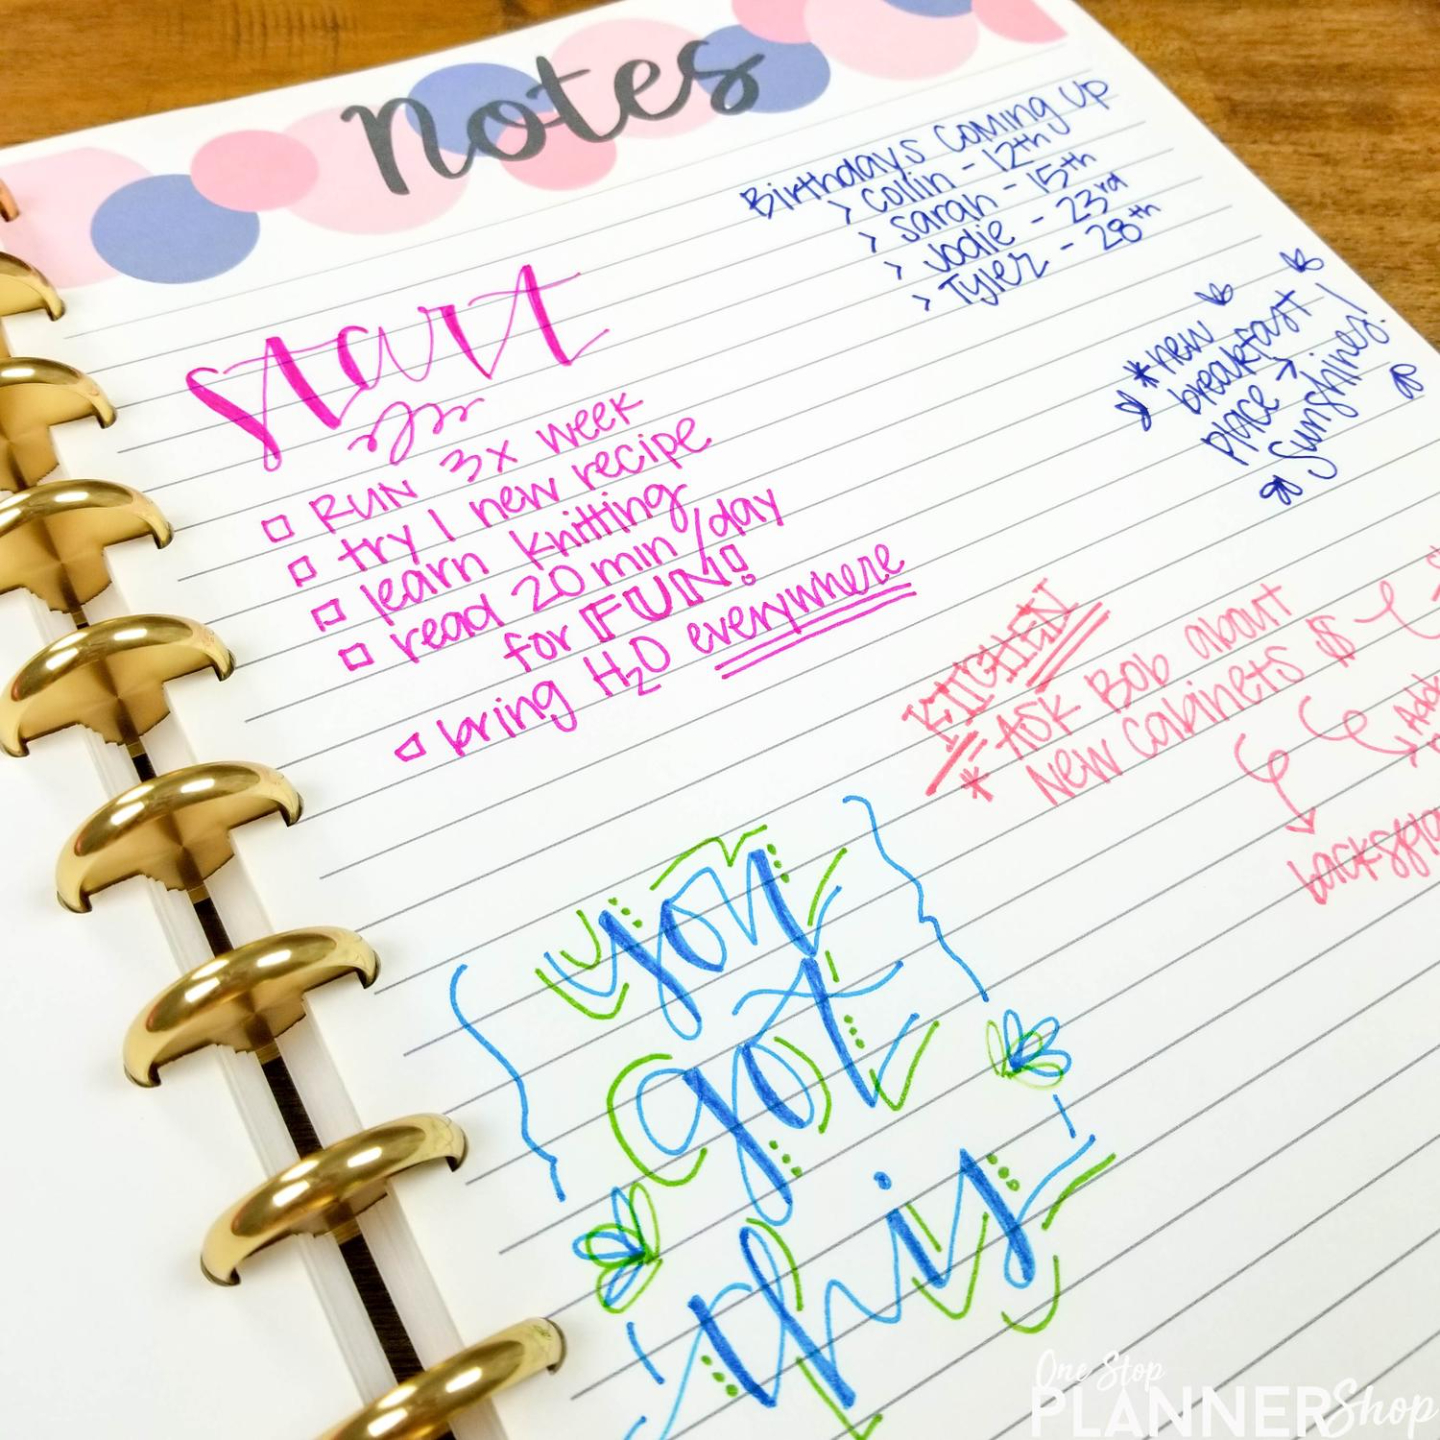 Notes
Birthdays Coming Up
> Collin - 12th
> Sarah - 15th
> Jodie - 23rd
> Tyler - 28th
*new
breakfast
place →
Sunshines!
start
□ RUN 3x week
□ try 1 new recipe
□ learn knitting
□ read 20 min/day
for FUN!
□ bring H₂O everywhere
KITCHEN
* Ask Bob about
New Cabinets $
you
got
this
One Stop
PLANNERShop